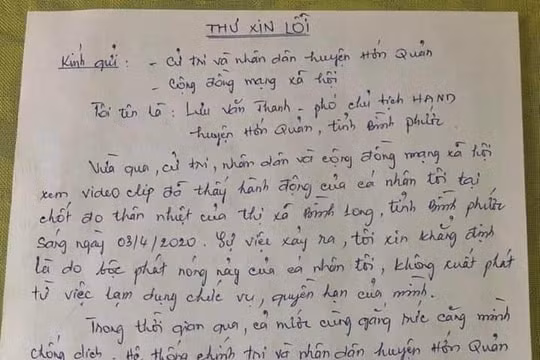 THƯ XIN LỖI
Kính gửi : - Cử tri và nhân dân huyện Hớn Quản
- Cộng đồng mạng xã hội
Tôi tên là : Lưu Văn Thanh - phó chủ tịch HĐND
huyện Hớn Quản, tỉnh Bình Phước
Vừa qua, cử tri, nhân dân và cộng đồng mạng xã hội
xem video clip đã thấy hành động của cá nhân tôi tại
chốt đo thân nhiệt của thị xã Bình Long, tỉnh Bình Phước
sáng ngày 03/4/2020. Sự việc xảy ra, tôi xin khẳng định
là do bộc phát nóng nảy của cá nhân tôi, không xuất phát
từ việc lạm dụng chức vụ, quyền hạn của mình.
Trong thời gian qua, cả nước cùng gắng sức căng mình
chống dịch. Hệ thống chính trị và nhân dân huyện Hớn Quản